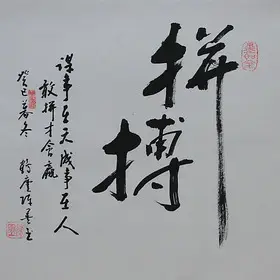 拼搏
谋事在天成事在人
敢拼才会赢
癸巳暮冬